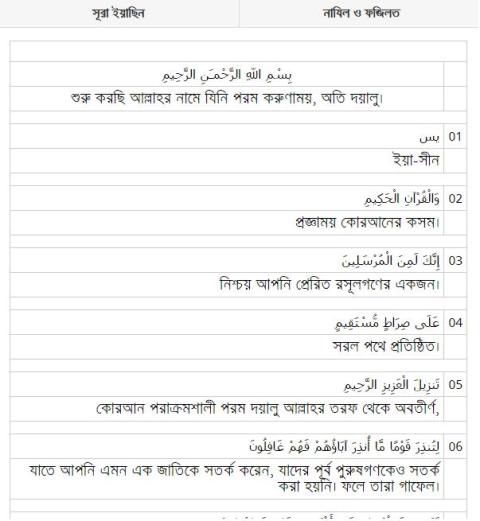 সূরা ইয়াছিন
নাযিল ও ফজিলত
بِسْمِ اللّهِ الرَّحْمـَنِ الرَّحِيمِ
শুরু করছি আল্লাহর নামে যিনি পরম করুণাময়, অতি দয়ালু।
يس 01
ইয়া-সীন
وَالْقُرْآنِ الْحَكِيمِ 02
প্রজ্ঞাময় কোরআনের কসম।
إِنَّكَ لَمِنَ الْمُرْسَلِينَ 03
নিশ্চয় আপনি প্রেরিত রসূলগণের একজন।
عَلَى صِرَاطٍ مُّسْتَقِيمٍ 04
সরল পথে প্রতিষ্ঠিত।
تَنزِيلَ الْعَزِيزِ الرَّحِيمِ 05
কোরআন পরাক্রমশালী পরম দয়ালু আল্লাহর তরফ থেকে অবতীর্ণ,
لِتُنذِرَ قَوْمًا مَّا أُنذِرَ آبَاؤُهُمْ فَهُمْ غَافِلُونَ 06
যাতে আপনি এমন এক জাতিকে সতর্ক করেন, যাদের পূর্ব পুরুষগণকেও সতর্ক
করা হয়নি। ফলে তারা গাফেল।